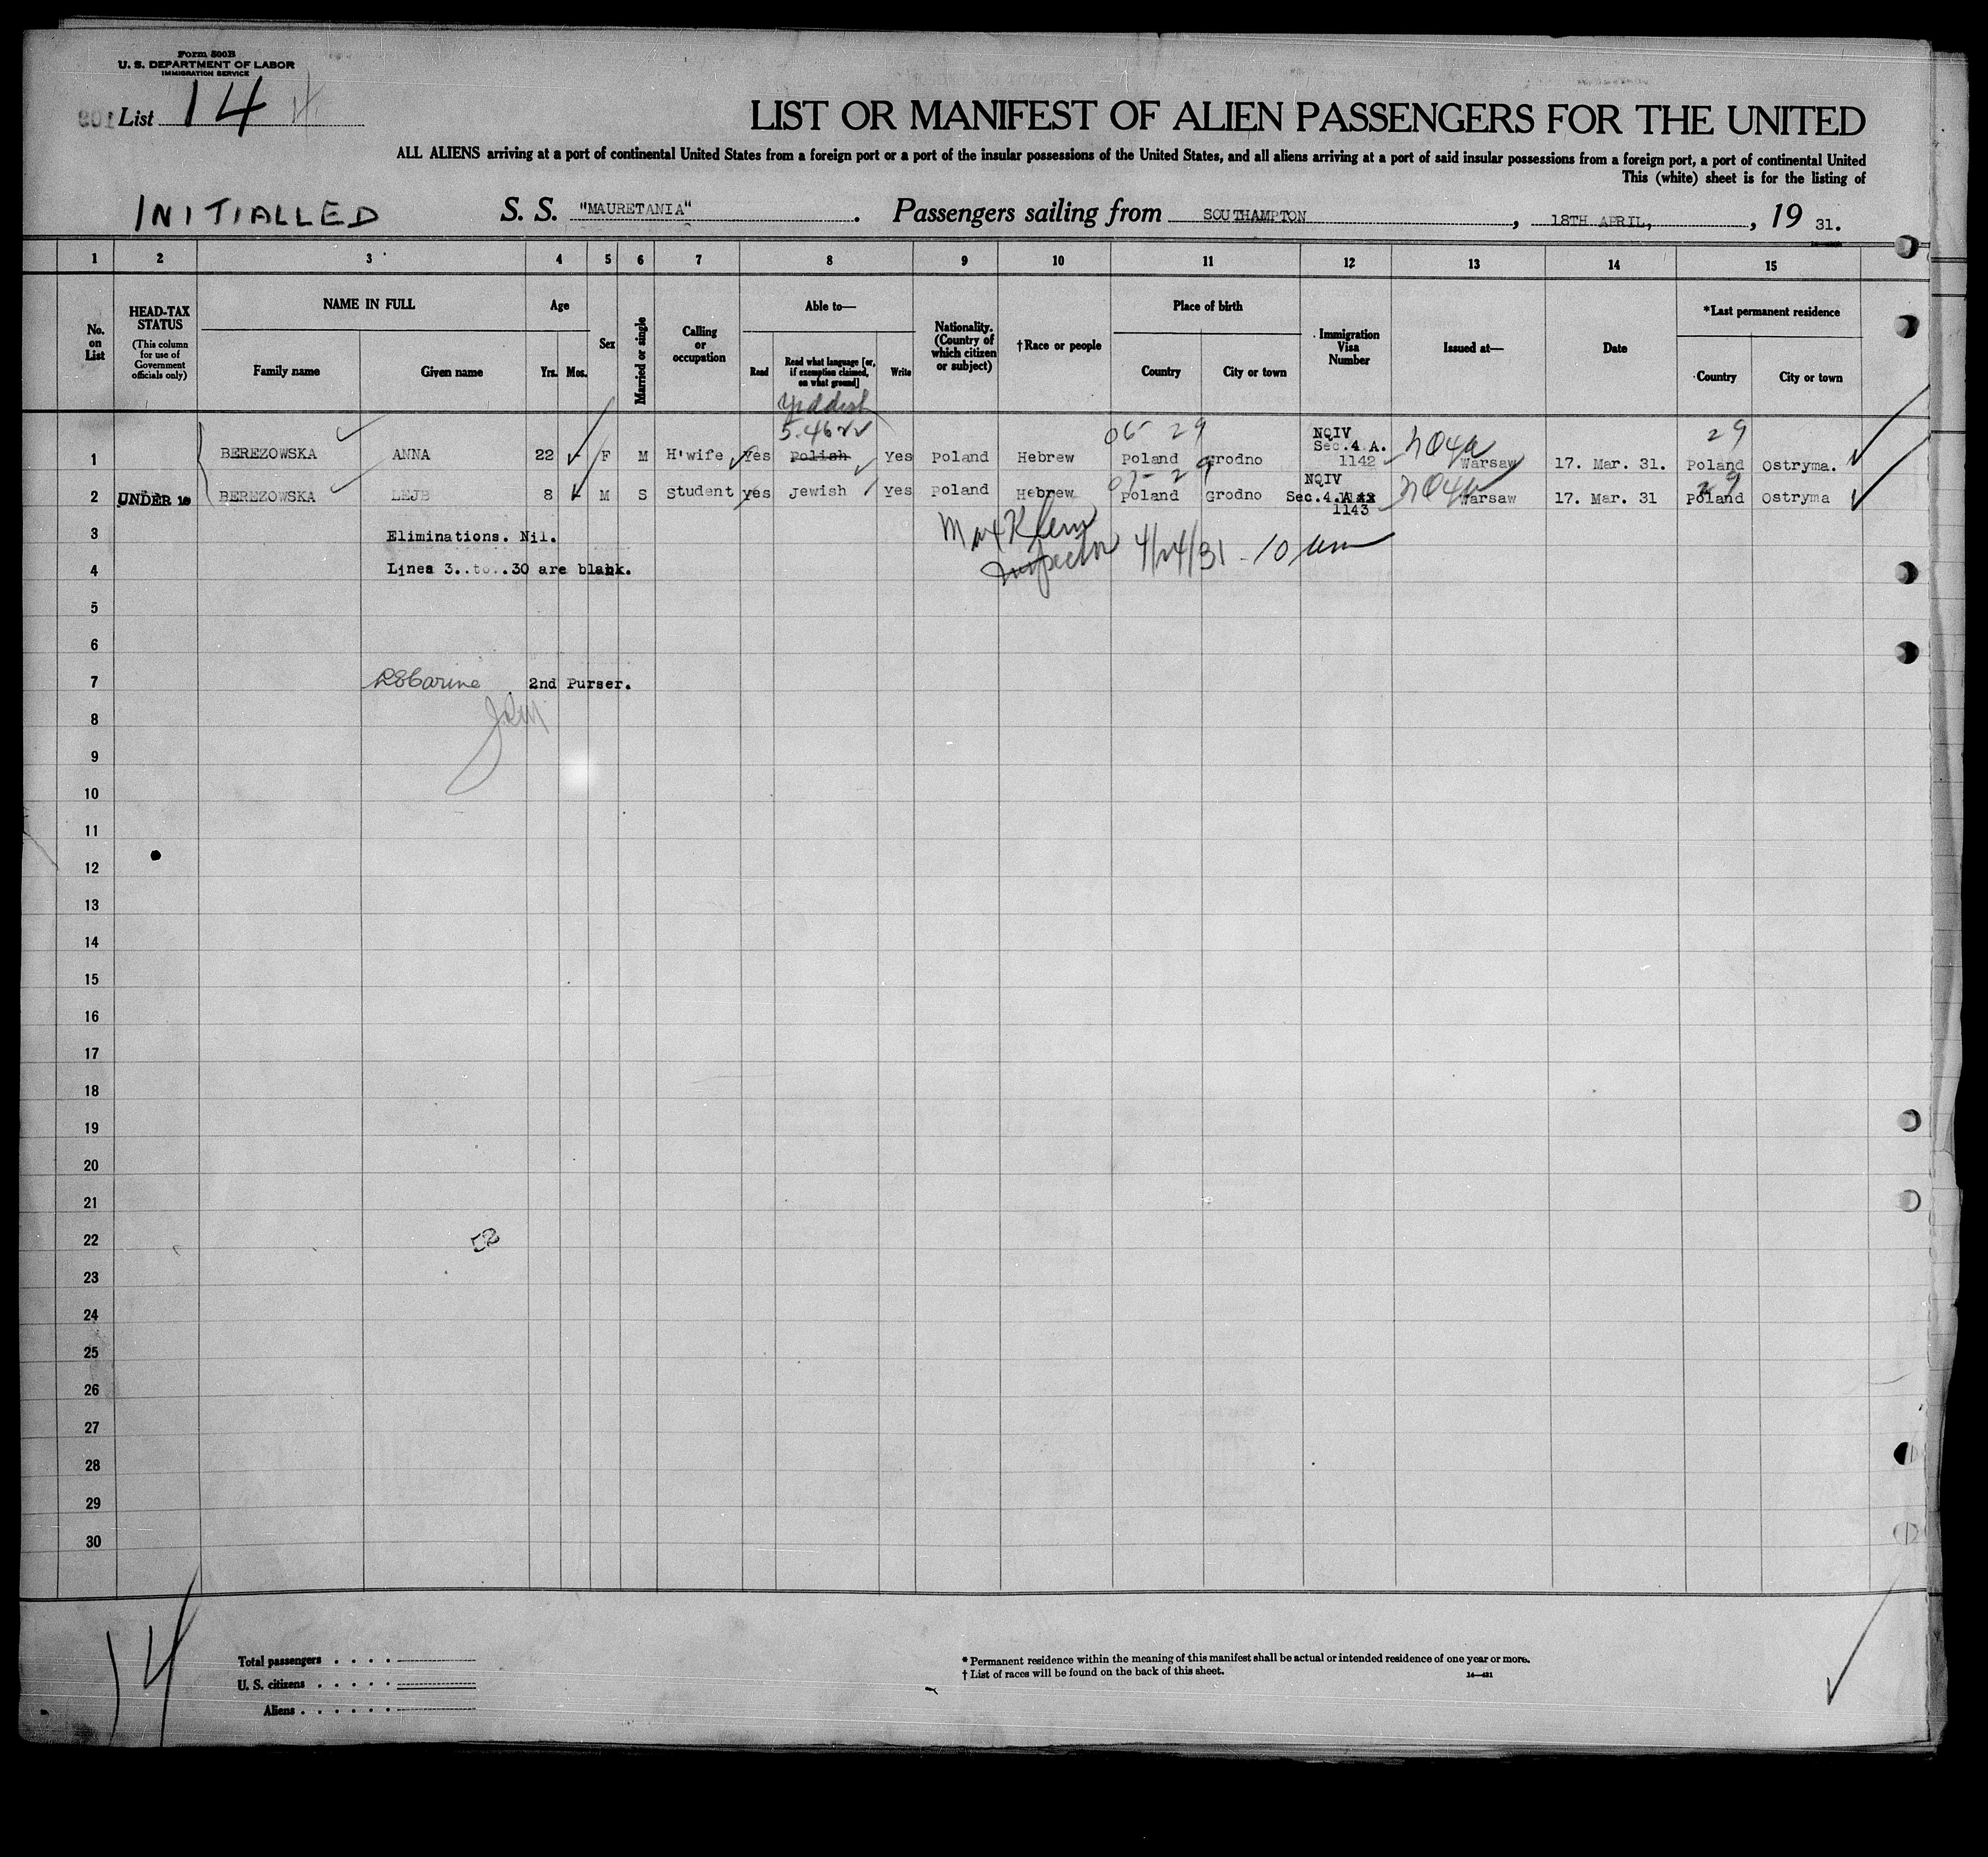 Form 500B
U. S. DEPARTMENT OF LABOR
IMMIGRATION SERVICE
List 14
LIST OR MANIFEST OF ALIEN PASSENGERS FOR THE UNITED
ALL ALIENS arriving at a port of continental United States from a foreign port or a port of the insular possessions of the United States, and all aliens arriving at a port of said insular possessions from a foreign port, a port of continental United
This (white) sheet is for the listing of
INITIALLED
S. S. "MAURETANIA". Passengers sailing from SOUTHAMPTON, 18TH APRIL, , 19 31.
1 2 3 4 5 6 7 8 9 10 11 12 13 14 15
No. on List
HEAD-TAX STATUS
(This column for use of Government officials only)
NAME IN FULL
Family name
Given name
Age
Yrs. Mos.
Sex
Married or single
Calling or occupation
Able to—
Read
Read what language [or, if exemption claimed, on what ground]
Write
Nationality. (Country of which citizen or subject)
†Race or people
Place of birth
Country
City or town
Immigration Visa Number
Issued at—
Date
*Last permanent residence
Country
City or town
Yiddish
5.46
06- 29
NQIV
Sec.4.A.
29
1 BEREZOWSKA ANNA 22 - F M H'wife Yes Polish Yes Poland Hebrew Poland Grodno 1142 Warsaw 17. Mar. 31. Poland Ostryma.
07- 29
NQIV
29
2 UNDER 16 BEREZOWSKA LEJB 8 - M S Student yes Jewish yes Poland Hebrew Poland Grodno Sec.4.A Warsaw 17. Mar. 31 Poland Ostryma
1143
3 Eliminations. Nil.
Max Klein
Inspector 4/24/31 - 10 am
4 Lines 3..to..30 are blank.
5
6
7 2nd Purser.
8
9
10
11
12
13
14
15
16
17
18
19
20
21
22
23
24
25
26
27
28
29
30
14
Total passengers . . . .
U. S. citizens . . . . .
Aliens . . . . . .
* Permanent residence within the meaning of this manifest shall be actual or intended residence of one year or more.
† List of races will be found on the back of this sheet.